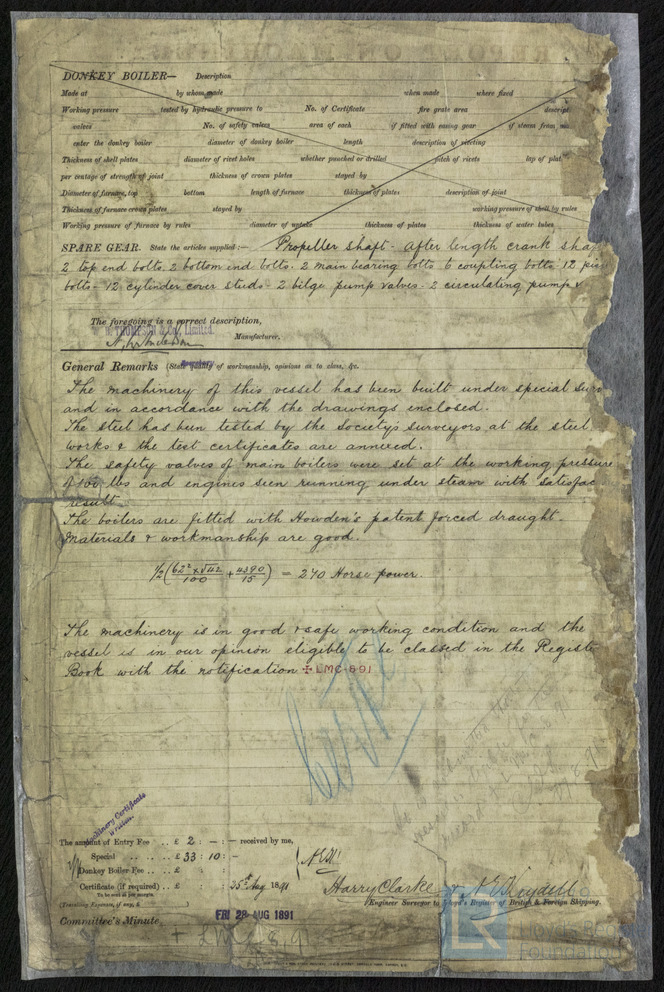 DONKEY BOILER— Description
Made at by whom made when made where fixed
Working pressure tested by hydraulic pressure to No. of Certificate fire grate area descript
valves No. of safety valves area of each if fitted with easing gear if steam from
enter the donkey boiler diameter of donkey boiler length description of riveting
Thickness of shell plates diameter of rivet holes whether punched or drilled pitch of rivets lap of plat
per centage of strength of joint thickness of crown plates stayed by
Diameter of furnace, top bottom length of furnace thickness of plates description of joint
Thickness of furnace crown plates stayed by working pressure of shell by rules
Working pressure of furnace by rules diameter of uptake thickness of plates thickness of water tubes
SPARE GEAR. State the articles supplied:— Propeller shaft - after length crank sha
2 top end bolts. 2 bottom end bolts. 2 main bearing bolts 6 coupling bolts 12
bolts - 12 cylinder cover studs 2 bilge pump valves - 2 circulating pump
The foregoing is a correct description,
THOMPSON & Co., Limited.
Manufacturer.
Secretary
General Remarks (State quality of workmanship, opinions as to class, &c.
The machinery of this vessel has been built under special surv
and in accordance with the drawings enclosed.
The steel has been tested by the society's surveyors at the steel
works & the test certificates are annexed.
The safety valves of main boilers were set at the working pressure
of lbs and engines seen running under steam with satisfac
result.
The boilers are fitted with Howden's patent forced draught.
Materials & workmanship are good.
½(62²×√42/100 + 4390/15) = 270 Horse power.
The machinery is in good & safe working condition and the
vessel is in our opinion eligible to be classed in the Registe
Book with the notification ✠LMC-8.91
Machinery Certificate
Written.
The amount of Entry Fee .. £ 2 : - : - received by me,
Special .. £ 33 : 10 : -
Donkey Boiler Fee .. £ : :
Certificate (if required) .. £ : : 25th Aug 1891
To be sent as per margin.
(Travelling Expenses, if any, £ )
Harry Clarke & N. E. Keydell
Engineer Surveyor to Lloyd's Register of British & Foreign Shipping.
Committee's Minute
FRI 28 AUG 1891
+ LMC 8,91
LR
Lloyd's Register
Foundation